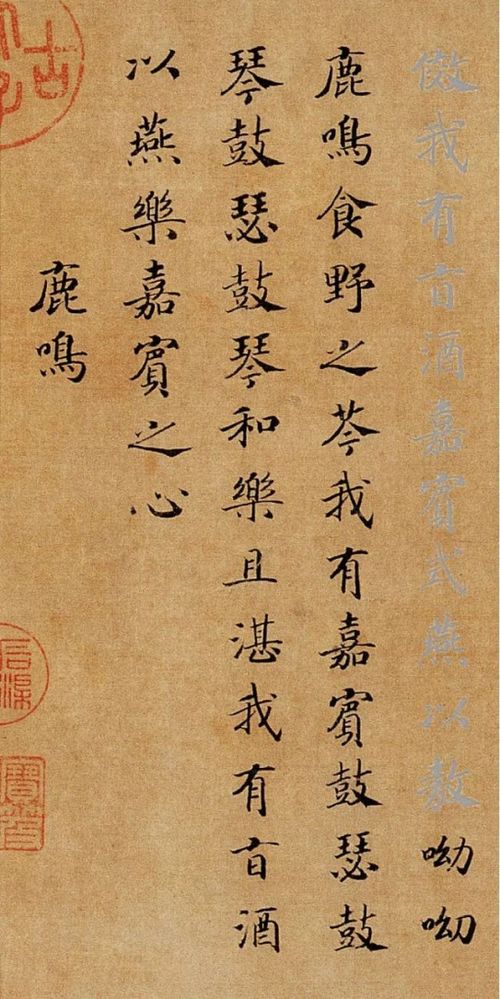 傚我有旨酒嘉賓式燕以敖呦呦
鹿鳴食野之芩我有嘉賓鼓瑟鼓
琴鼓瑟鼓琴和樂且湛我有旨酒
以燕樂嘉賓之心
鹿鳴